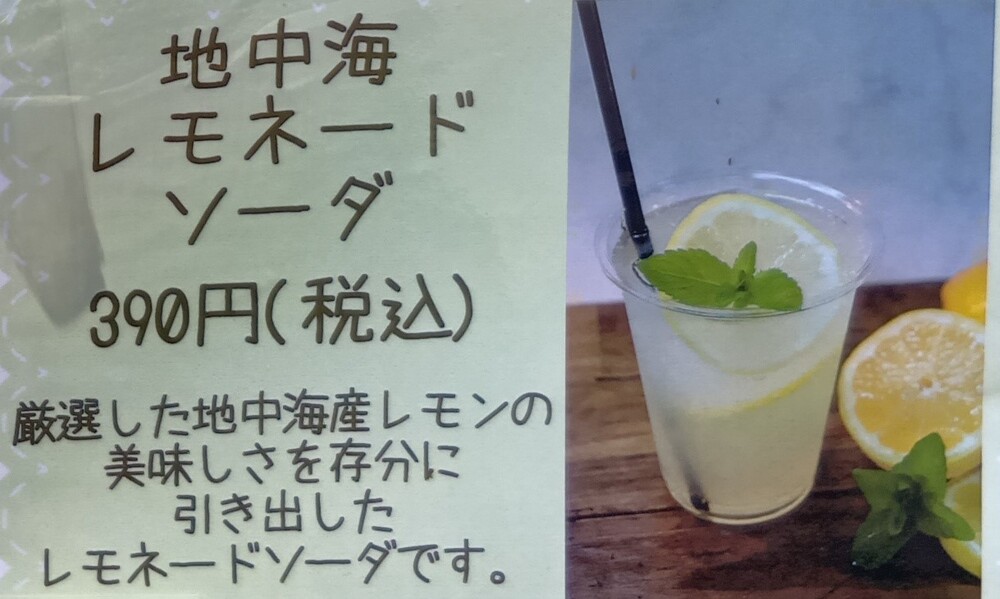 地中海
レモネード
ソーダ
390円(税込)
厳選した地中海産レモンの
美味しさを存分に
引き出した
レモネードソーダです。